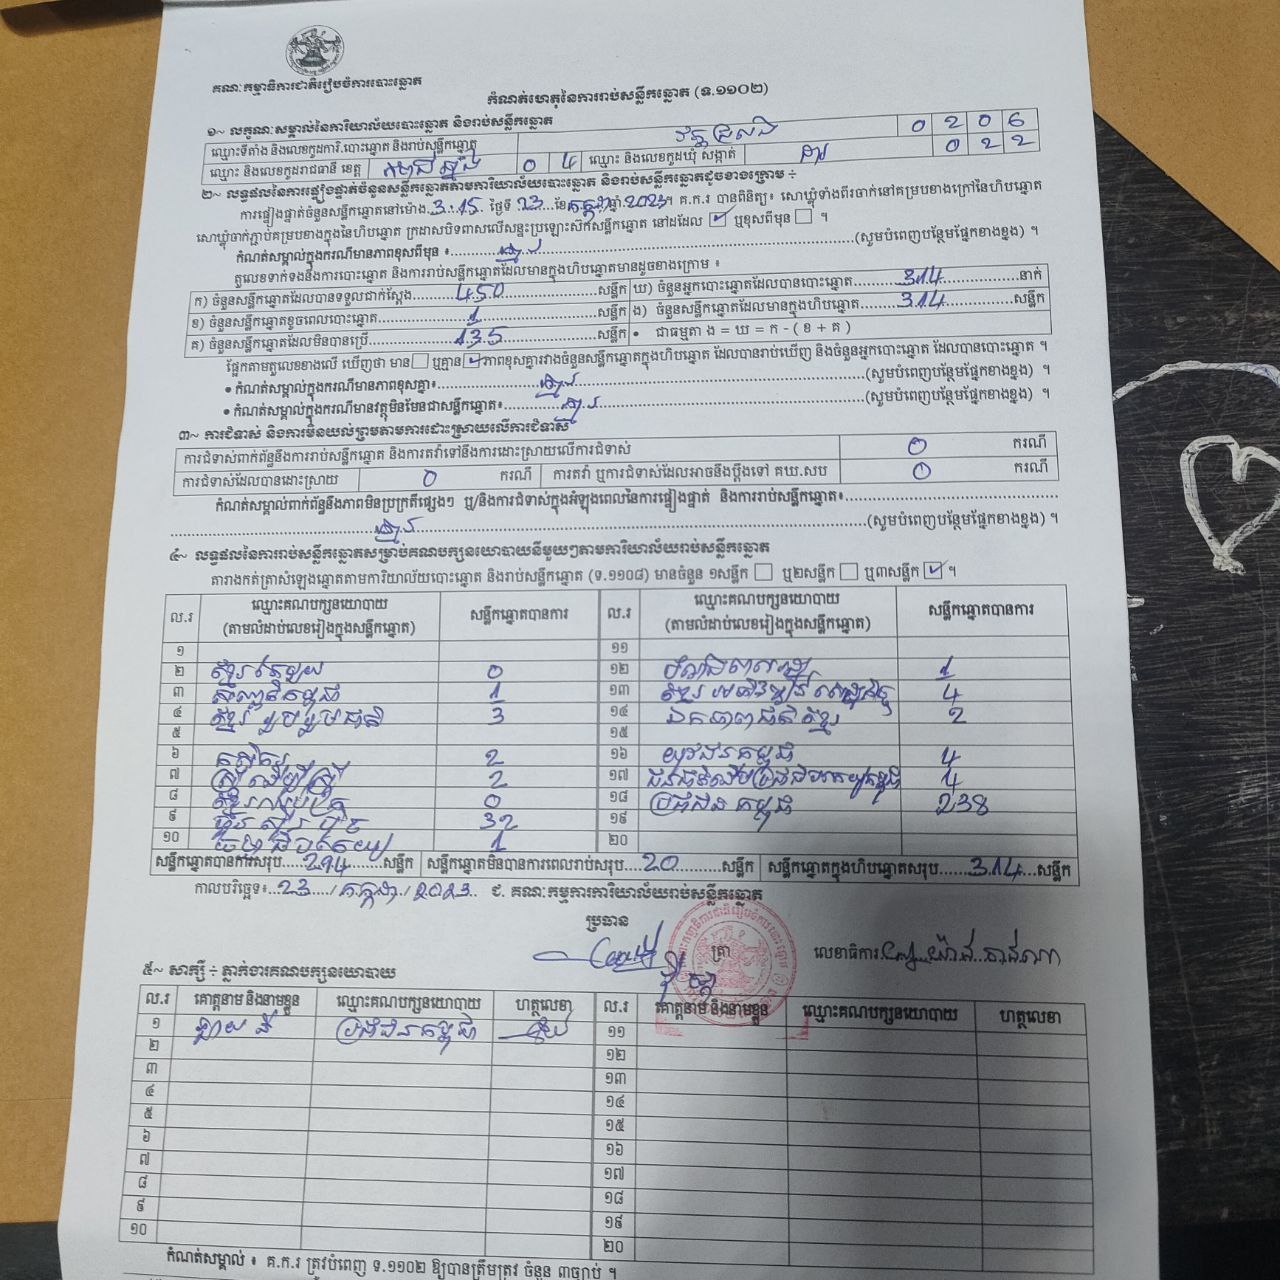 គណៈកម្មាធិការជាតិរៀបចំការបោះឆ្នោត
កំណត់ហេតុនៃការរាប់សន្លឹកឆ្នោត (ទ.១១០២)
១~ លក្ខណៈសម្គាល់នៃការិយាល័យបោះឆ្នោត និងរាប់សន្លឹកឆ្នោត
ឈ្មោះទីតាំង និងលេខកូដការិ.បោះឆ្នោត និងរាប់សន្លឹកឆ្នោត 0 2 0 6
ឈ្មោះ និងលេខកូដរាជធានី ខេត្ត កំពង់ឆ្នាំង 0 4 ឈ្មោះ និងលេខកូដឃុំ សង្កាត់ 0 2 2
២~ លទ្ធផលនៃការផ្ទៀងផ្ទាត់ចំនួនសន្លឹកឆ្នោតតាមការិយាល័យបោះឆ្នោត និងរាប់សន្លឹកឆ្នោតដូចខាងក្រោម ÷
ការផ្ទៀងផ្ទាត់ចំនួនសន្លឹកឆ្នោតនៅម៉ោង 3:15 ថ្ងៃទី 23 ខែ កក្កដា ឆ្នាំ 2023 ។ គ.ក.រ បានពិនិត្យ៖ សោឃ្លុំទាំងពីរចាក់នៅគម្របខាងក្រៅនៃហិបឆ្នោត
សោឃ្លុំចាក់ភ្ជាប់គម្របខាងក្នុងនៃហិបឆ្នោត ក្រដាសបិទពាសលើសន្ទះប្រឡោះស៊កសន្លឹកឆ្នោត នៅដដែល ✓ ឬខុសពីមុន ។
កំណត់សម្គាល់ក្នុងករណីមានភាពខុសពីមុន ៖ គ្មាន (សូមបំពេញបន្ថែមផ្នែកខាងខ្នង) ។
តួលេខទាក់ទងនឹងការបោះឆ្នោត និងការរាប់សន្លឹកឆ្នោតដែលមានក្នុងហិបឆ្នោតមានដូចខាងក្រោម ៖
ក) ចំនួនសន្លឹកឆ្នោតដែលបានទទួលជាក់ស្តែង 450 សន្លឹក ឃ) ចំនួនអ្នកបោះឆ្នោតដែលបានបោះឆ្នោត 314 នាក់
ខ) ចំនួនសន្លឹកឆ្នោតខូចពេលបោះឆ្នោត 1 សន្លឹក ង) ចំនួនសន្លឹកឆ្នោតដែលមានក្នុងហិបឆ្នោត 314 សន្លឹក
គ) ចំនួនសន្លឹកឆ្នោតដែលមិនបានប្រើ 135 សន្លឹក • ជាធម្មតា ង = ឃ = ក - ( ខ + គ )
ផ្អែកតាមតួលេខខាងលើ ឃើញថា មាន ឬគ្មាន ✓ ភាពខុសគ្នារវាងចំនួនសន្លឹកឆ្នោតក្នុងហិបឆ្នោត ដែលបានរាប់ឃើញ និងចំនួនអ្នកបោះឆ្នោត ដែលបានបោះឆ្នោត ។
• កំណត់សម្គាល់ក្នុងករណីមានភាពខុសគ្នា៖ គ្មាន (សូមបំពេញបន្ថែមផ្នែកខាងខ្នង) ។
• កំណត់សម្គាល់ក្នុងករណីមានវត្ថុមិនមែនជាសន្លឹកឆ្នោត៖ គ្មាន (សូមបំពេញបន្ថែមផ្នែកខាងខ្នង) ។
៣~ ការជំទាស់ និងការមិនយល់ព្រមតាមការដោះស្រាយលើការជំទាស់
ការជំទាស់ពាក់ព័ន្ធនឹងការរាប់សន្លឹកឆ្នោត និងការតវ៉ាទៅនឹងការដោះស្រាយលើការជំទាស់ 0 ករណី
ការជំទាស់ដែលបានដោះស្រាយ 0 ករណី ការតវ៉ា ឬការជំទាស់ដែលអាចនឹងប្តឹងទៅ គឃ.សប 0 ករណី
កំណត់សម្គាល់ពាក់ព័ន្ធនឹងភាពមិនប្រក្រតីផ្សេងៗ ឬ/និងការជំទាស់ក្នុងអំឡុងពេលនៃការផ្ទៀងផ្ទាត់ និងការរាប់សន្លឹកឆ្នោត៖
គ្មាន (សូមបំពេញបន្ថែមផ្នែកខាងខ្នង) ។
៤~ លទ្ធផលនៃការរាប់សន្លឹកឆ្នោតសម្រាប់គណបក្សនយោបាយនីមួយៗតាមការិយាល័យរាប់សន្លឹកឆ្នោត
តារាងកត់ត្រាសំឡេងឆ្នោតតាមការិយាល័យបោះឆ្នោត និងរាប់សន្លឹកឆ្នោត (ទ.១១០៨) មានចំនួន ១សន្លឹក ឬ២សន្លឹក ឬ៣សន្លឹក ✓ ។
ល.រ ឈ្មោះគណបក្សនយោបាយ សន្លឹកឆ្នោតបានការ ល.រ ឈ្មោះគណបក្សនយោបាយ សន្លឹកឆ្នោតបានការ
(តាមលំដាប់លេខរៀងក្នុងសន្លឹកឆ្នោត) (តាមលំដាប់លេខរៀងក្នុងសន្លឹកឆ្នោត)
១ ១១
២ 0 ១២ 1
៣ 1 ១៣ 4
៤ ខ្មែររួបរួមជាតិ 3 ១៤ ឯកភាពជាតិខ្មែរ 2
៥ ១៥
៦ 2 ១៦ យុវជនកម្ពុជា 4
៧ ស្ត្រីដើម្បីស្ត្រី 2 ១៧ 4
៨ 0 ១៨ ប្រជាជនកម្ពុជា 238
៩ ហ្វ៊ុនស៊ិនប៉ិច 32 ១៩
១០ 1 ២០
សន្លឹកឆ្នោតបានការសរុប 294 សន្លឹក សន្លឹកឆ្នោតមិនបានការពេលរាប់សរុប 20 សន្លឹក សន្លឹកឆ្នោតក្នុងហិបឆ្នោតសរុប 314 សន្លឹក
កាលបរិច្ឆេទ៖ 23 / កក្កដា / 2023 ជ. គណៈកម្មការការិយាល័យរាប់សន្លឹកឆ្នោត
ប្រធាន
ត្រា លេខាធិការ
៥~ សាក្សី ÷ ភ្នាក់ងារគណបក្សនយោបាយ
ល.រ គោត្តនាម និងនាមខ្លួន ឈ្មោះគណបក្សនយោបាយ ហត្ថលេខា ល.រ គោត្តនាម និងនាមខ្លួន ឈ្មោះគណបក្សនយោបាយ ហត្ថលេខា
១ ប្រជាជនកម្ពុជា ១១
២ ១២
៣ ១៣
៤ ១៤
៥ ១៥
៦ ១៦
៧ ១៧
៨ ១៨
៩ ១៩
១០ ២០
កំណត់សម្គាល់ ៖ គ.ក.រ ត្រូវបំពេញ ទ.១១០២ ឱ្យបានត្រឹមត្រូវ ចំនួន ៣ច្បាប់ ។